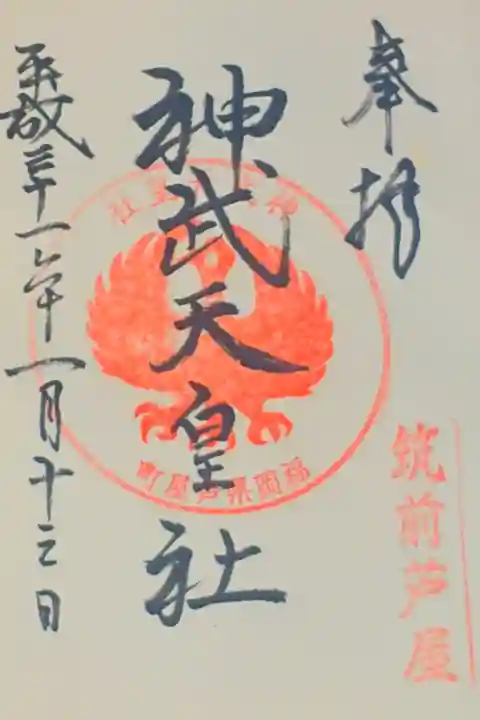 奉拝
筑前芦屋
神武天皇社
神武天皇社
福岡県芦屋町
平成三十一年一月十三日